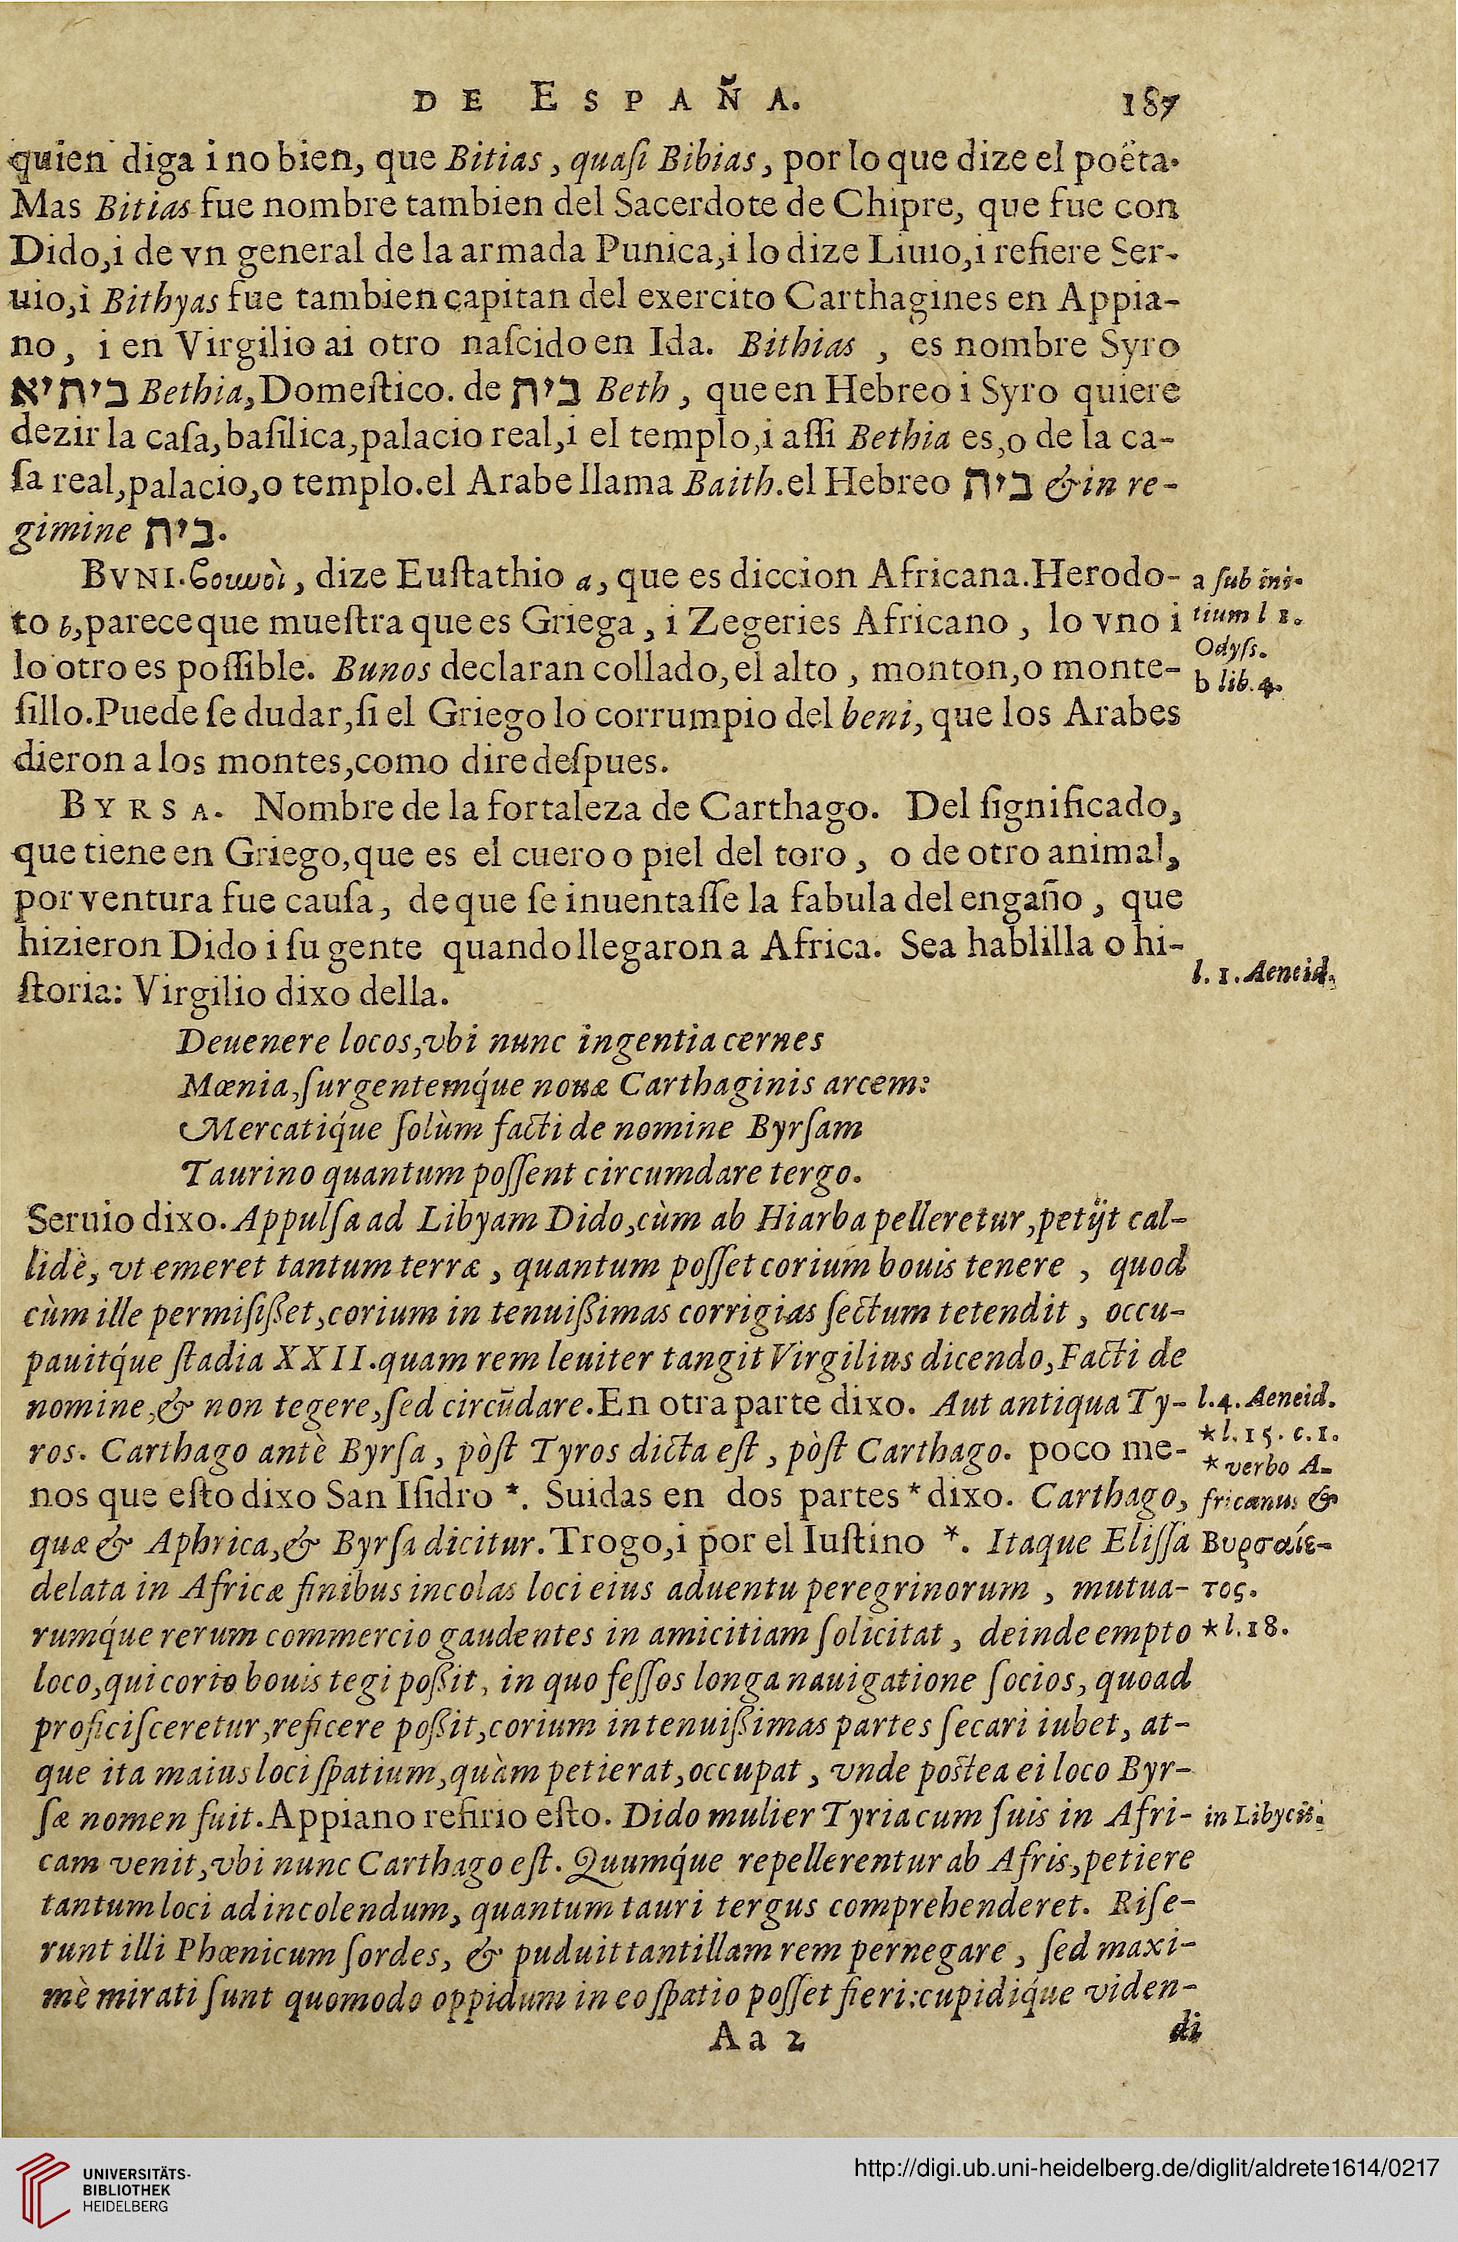 DE ESPAÑA. 187
quien diga i no bien, que Bitias, quaſi Bibias, por lo que dize el poëta.
Mas Bitias fue nombre tambien del Sacerdote de Chipre, que fue con
Dido,i de vn general de la armada Punica,i lo dize Liuio,i refiere Ser-
uio,i Bithyas fue tambien capitan del exercito Carthagines en Appia-
no, i en Virgilio ai otro naſcido en Ida. Bithias, es nombre Syro
ביתיא Bethia,Domeſtico. de בית Beth, que en Hebreo i Syro quiere
dezir la caſa,baſilica,palacio real,i el templo,i aſſi Bethia es,o de la ca-
ſa real,palacio,o templo.el Arabe llama Baith.el Hebreo בית & in re-
gimine בית.
BVNI.βουνοὶ, dize Euſtathio a, que es diccion Africana.Herodo-
a ſub ini-
to b,parece que mueſtra que es Griega, i Zegeries Africano, lo vno i
tium l 1.
Odyſſ.
lo otro es poſſible. Bunos declaran collado,el alto, monton,o monte-
b lib.4.
ſillo.Puede ſe dudar,ſi el Griego lo corrumpio del beni, que los Arabes
dieron a los montes,como dire deſpues.
BYRSA. Nombre de la fortaleza de Carthago. Del ſignificado,
que tiene en Griego,que es el cuero o piel del toro, o de otro animal,
por ventura fue cauſa, de que ſe inuentaſſe la fabula del engaño, que
hizieron Dido i ſu gente quando llegaron a Africa. Sea hablilla o hi-
ſtoria: Virgilio dixo della.
l. 1. Aeneid.
Deuenere locos,vbi nunc ingentia cernes
Mœnia,ſurgentemq́ue nouæ Carthaginis arcem:
Mercatiq́ue ſolùm facti de nomine Byrſam
Taurino quantum poſſent circumdare tergo.
Seruio dixo.Appulſa ad Libyam Dido,cùm ab Hiarba pelleretur,petijt cal-
lidè, vt emeret tantum terræ, quantum poſſet corium bouis tenere, quod
cùm ille permiſißet,corium in tenuißimas corrigias ſectum tetendit, occu-
pauitq́ue ſtadia XXII.quam rem leuiter tangit Virgilius dicendo,Facti de
nomine,& non tegere,ſed circũdare.En otra parte dixo. Aut antiqua Ty-
l.4. Aeneid.
ros. Carthago antè Byrſa, pòſt Tyros dicta eſt, pòſt Carthago. poco me-
*l.15. c.1.
*verbo A-
nos que eſto dixo San Iſidro *. Suidas en dos partes * dixo. Carthago,
fricanus &
quæ & Aphrica,& Byrſa dicitur.Trogo,i por el Iuſtino *. Itaque Eliſſa
Βυρσαίε-
delata in Africæ finibus incolas loci eius aduentu peregrinorum, mutua-
τος.
rumq́ue rerum commercio gaudentes in amicitiam ſolicitat, deinde empto
*l.18.
loco,qui corio bouis tegi poßit, in quo feſſos longa nauigatione ſocios, quoad
proficiſceretur,reficere poßit,corium in tenuißimas partes ſecari iubet, at-
que ita maius loci ſpatium,quàm petierat,occupat, vnde poſtea ei loco Byr-
ſæ nomen fuit.Appiano refirio eſto. Dido mulier Tyria cum ſuis in Afri-
in Libycis.
cam venit,vbi nunc Carthago eſt. Quumq́ue repellerentur ab Afris,petiere
tantum loci ad incolendum, quantum tauri tergus comprehenderet. Riſe-
runt illi Phœnicum ſordes, & puduit tantillam rem pernegare, ſed maxi-
mè mirati ſunt quomodo oppidum in eo ſpatio poſſet fieri:cupidiq́ue viden-
Aa 2 di
UNIVERSITÄTS-
BIBLIOTHEK
HEIDELBERG
http://digi.ub.uni-heidelberg.de/diglit/aldrete1614/0217